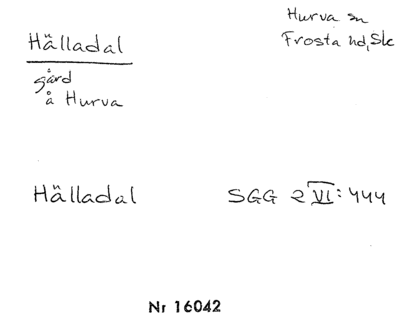 Hälladal
Hurva sn
Frosta hd, Sk
gård
å Hurva
Hälladal SGG 2 VI: 444
Nr 16042